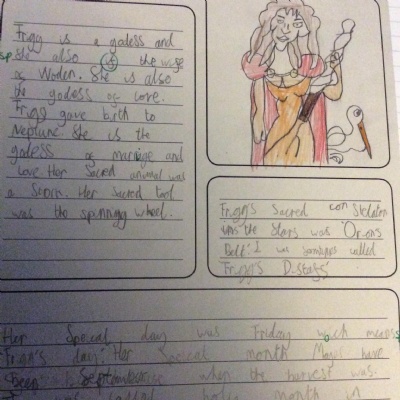 Frigg is a godess and
sp She also is the wife
of Woden. She is also
the godess of love.
Frigg gave birth to
Neptune. She is the
godess of mariage and
Love. Her Sacred animal was
a Stork. Her Sacred tool
was the spinning wheel.
Frigg's sacred constelation
in the stars was "Orions
Belt". I was somtimes called
Frigg's Distaff.
Her Speical day was Friday wich means
Frigg's day. Her speical month have
Been September when the harvest was.
called holy month